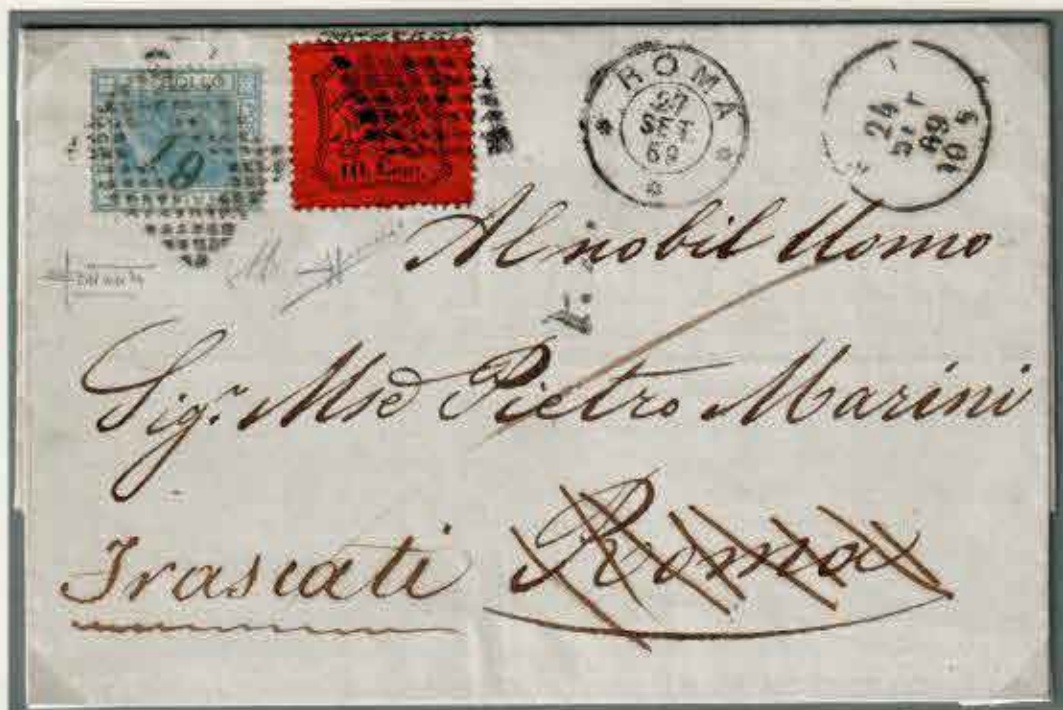 BOLLO
19
10 Cent.
ROMA
27
SET
69
24
69
10 S
Al nobil Uomo
Sig.r Mse Pietro Marini
Frascati Roma